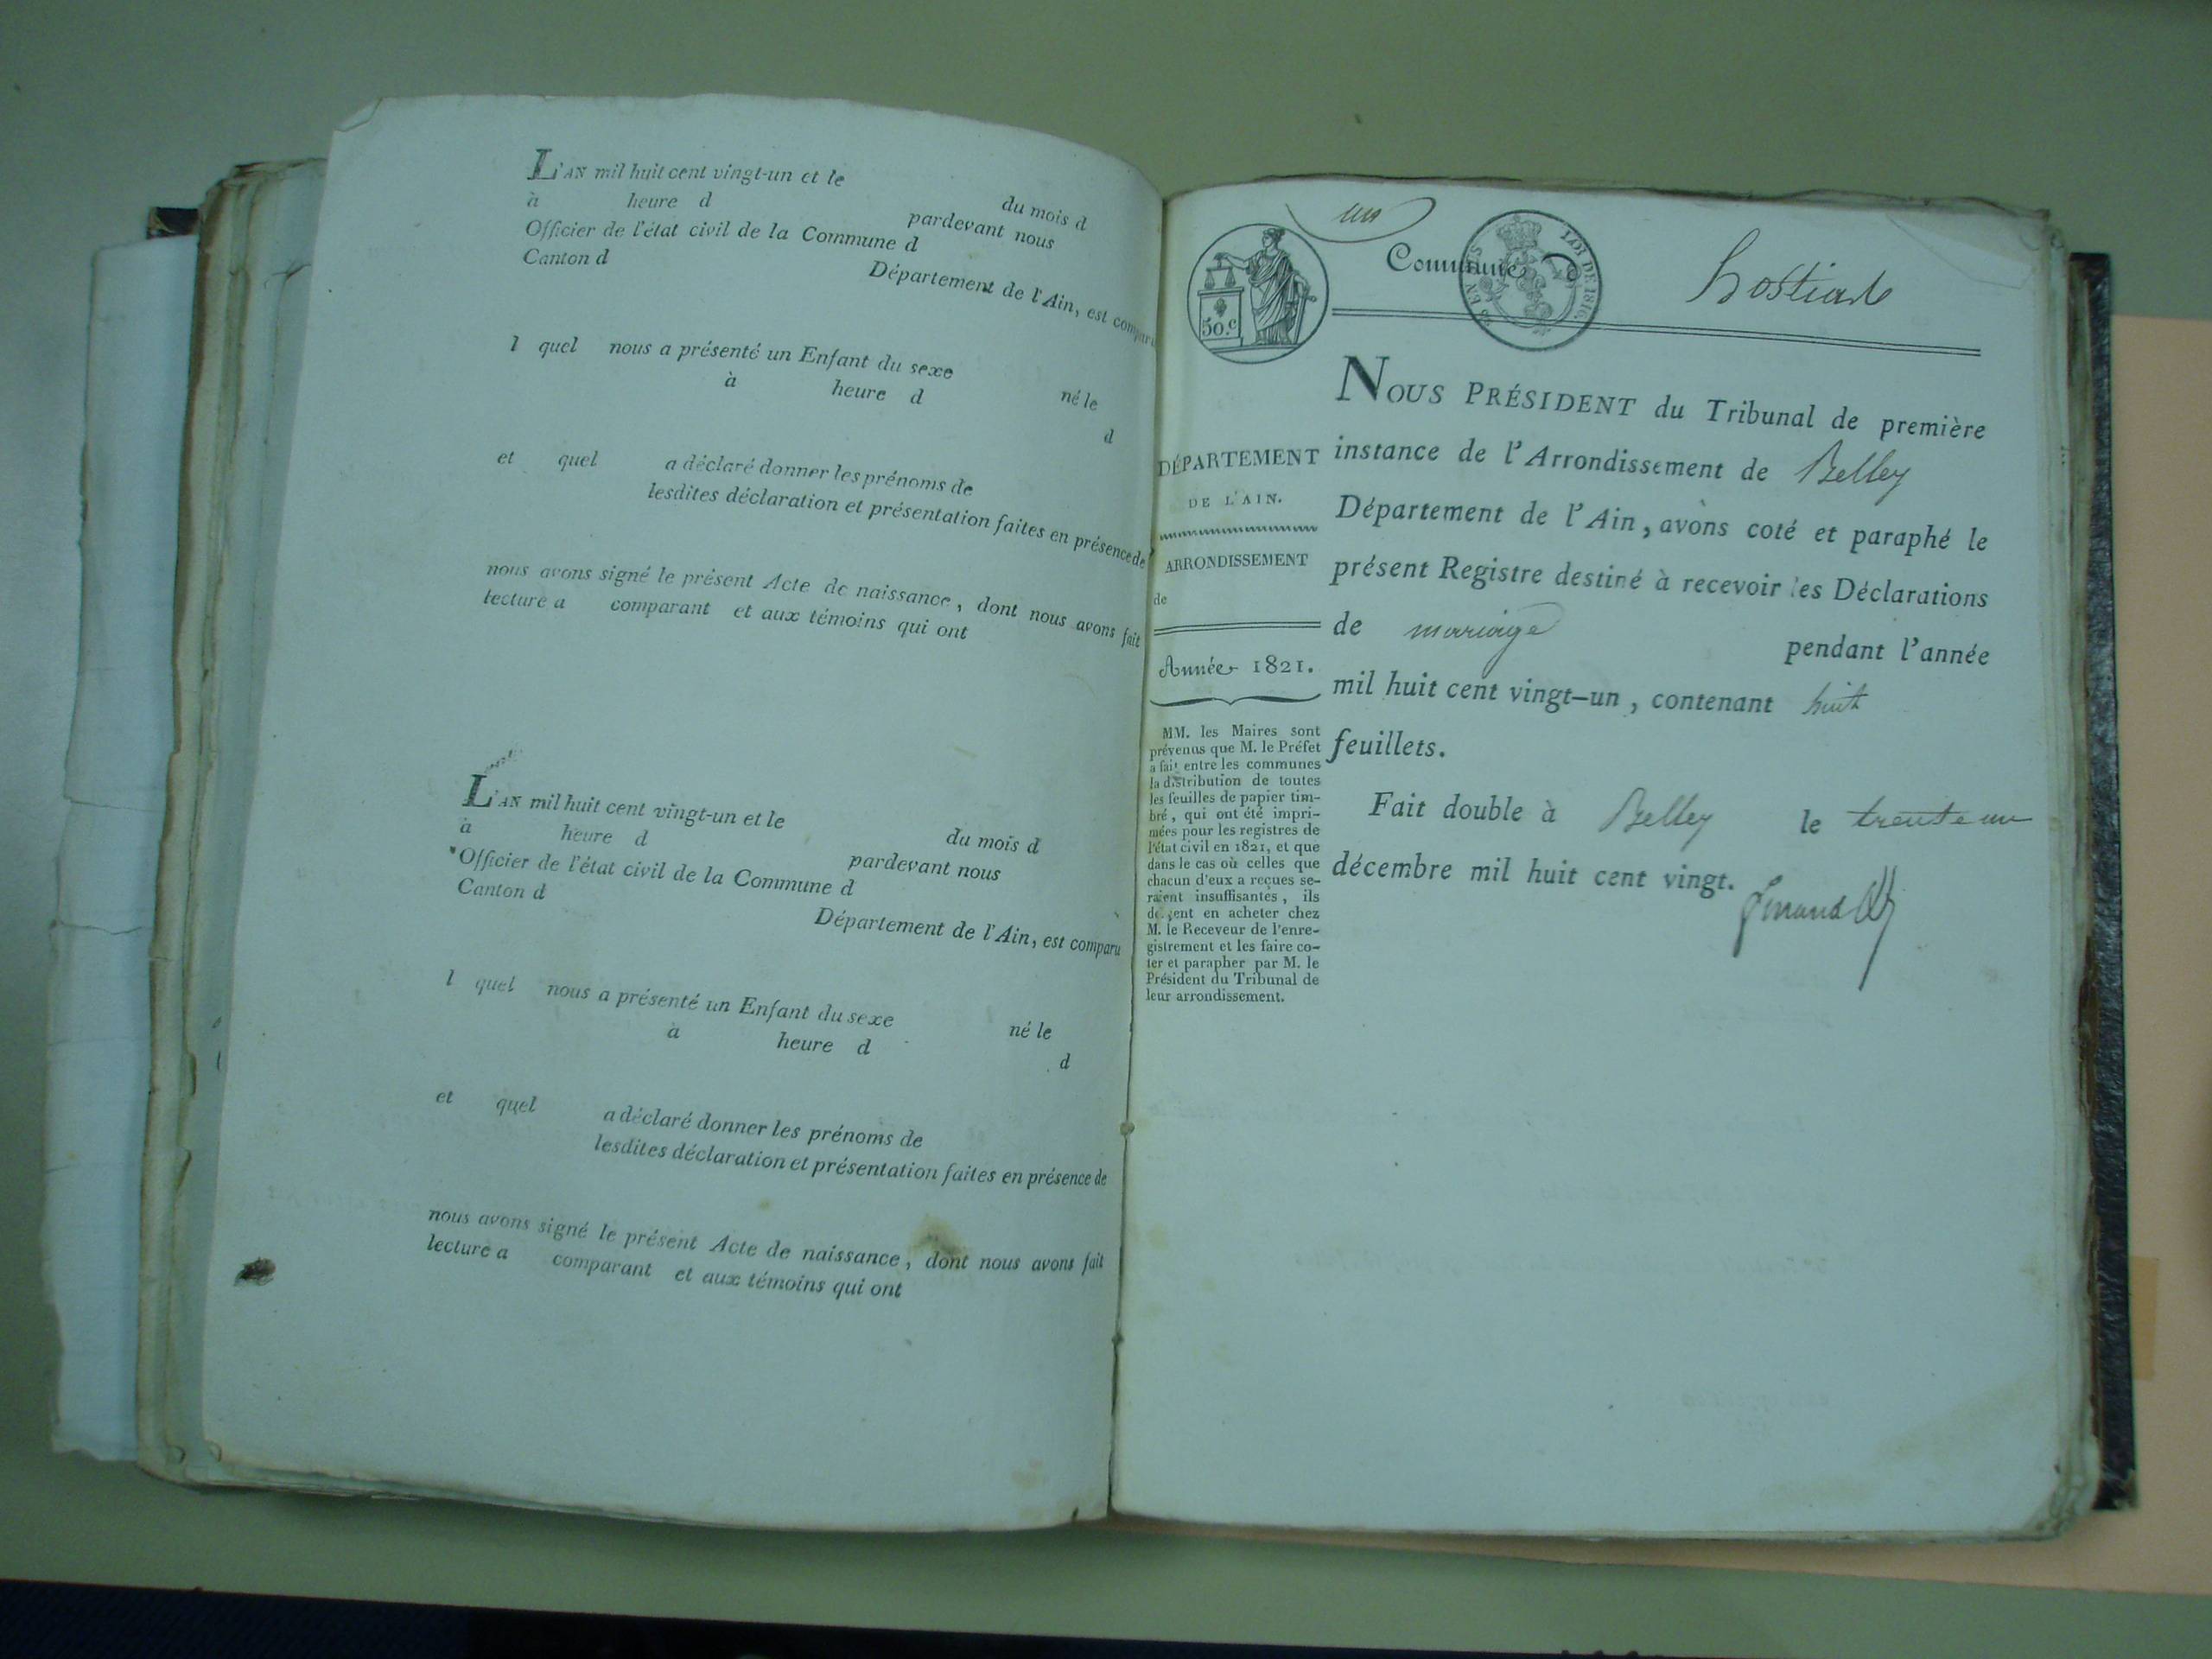 L'AN mil huit cent vingt-un et le du mois d
à heure d pardevant nous
Officier de l'état civil de la Commune d
Canton d Département de l'Ain, est comparu
l quel nous a présenté un Enfant du sexe né le
à heure d d
et quel a déclaré donner les prénoms de
lesdites déclaration et présentation faites en présence de
nous avons signé le présent Acte de naissance, dont nous avons fait
lecture a comparant et aux témoins qui ont
L'AN mil huit cent vingt-un et le du mois d
à heure d pardevant nous
Officier de l'état civil de la Commune d
Canton d Département de l'Ain, est comparu
l quel nous a présenté un Enfant du sexe né le
à heure d d
et quel a déclaré donner les prénoms de
lesdites déclaration et présentation faites en présence de
nous avons signé le présent Acte de naissance, dont nous avons fait
lecture a comparant et aux témoins qui ont
un
Commune d hostiade
50.c
LOI DE 1816.
DÉPARTEMENT
DE L'AIN.
ARRONDISSEMENT
de
Année 1821.
MM. les Maires sont
prévenus que M. le Préfet
a fait entre les communes
la distribution de toutes
les feuilles de papier tim-
bré, qui ont été impri-
mées pour les registres de
l'état civil en 1821, et que
dans le cas où celles que
chacun d'eux a reçues se-
raient insuffisantes, ils
doivent en acheter chez
M. le Receveur de l'enre-
gistrement et les faire co-
ter et parapher par M. le
Président du Tribunal de
leur arrondissement.
NOUS PRÉSIDENT du Tribunal de première
instance de l'Arrondissement de Belley
Département de l'Ain, avons coté et paraphé le
présent Registre destiné à recevoir les Déclarations
de mariage pendant l'année
mil huit cent vingt-un, contenant huit
feuillets.
Fait double à Belley le trente un
décembre mil huit cent vingt.